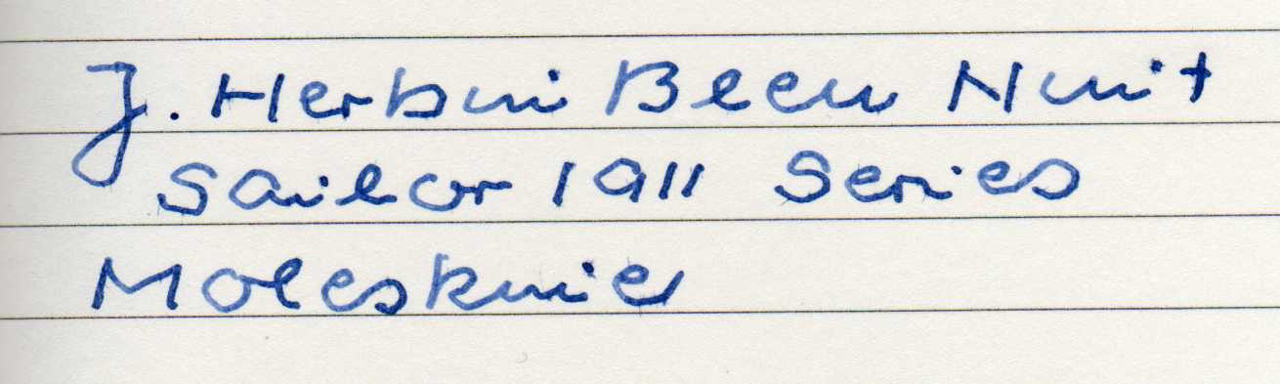 J. Herbin Bleu Nuit
Sailor 1911 Series
Moleskine